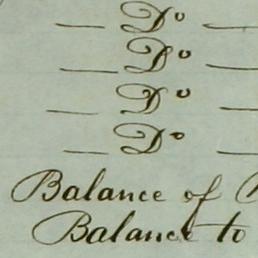 — Do —
— Do —
— Do —
— Do —
Balance of
Balance to